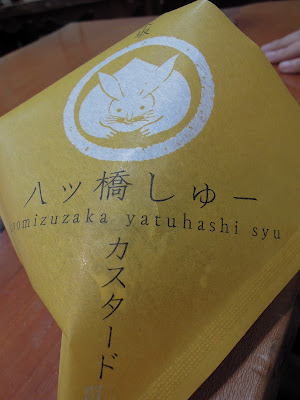 坂
八ッ橋しゅー
omizuzaka yatuhashi syu
カスタード